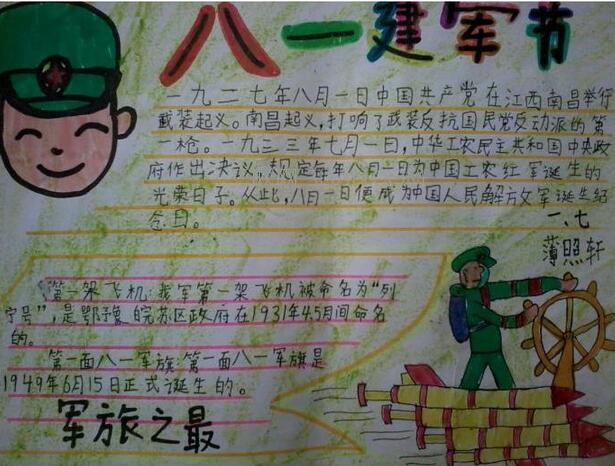 八一建军节
一九二七年八月一日中国共产党在江西南昌举行
武装起义。南昌起义，打响了武装反抗国民党反动派的第
一枪。一九三三年七月一日，中华工农民主共和国中央政
府作出决议，规定每年八月一日为中国工农红军诞生的
光荣日子。从此，八月一日便成为中国人民解放军诞生纪
念日。
一、七
薄照轩
第一架飞机：我军第一架飞机被命名为“列
宁号”，是鄂予豫皖苏区政府在1931年4.5月间命名
的。
第一面八一军旗：第一面八一军旗是
1949年6月15日正式诞生的。
军旅之最